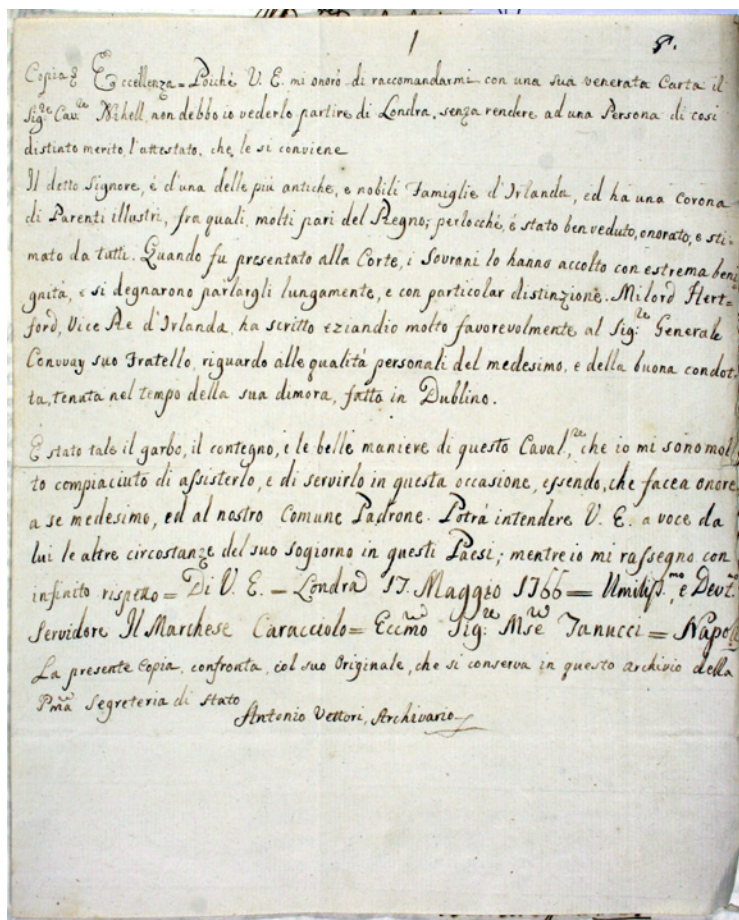 1 8.
Copia = Eccellenza = Poichè V. E. mi onorò di raccomandarmi con una sua venerata Carta il
Sig:re Cav:re Nihell, non debbo io vederlo partire di Londra, senza rendere ad una Persona di così
distinto merito l'attestato, che le si conviene
Il detto Signore, è d'una delle più antiche, e nobili Famiglie d'Irlanda, ed ha una corona
di Parenti illustri, fra quali, molti pari del Regno; perlocchè, è stato ben veduto, onorato, e sti-
mato da tutti. Quando fu presentato alla Corte, i Sovrani lo hanno accolto con estrema beni
gnità, e si degnarono parlargli lungamente, e con particolar distinzione. Milord Hert=
ford, Vice Re d'Irlanda, ha scritto eziandio molto favorevolmente al Sig:re Generale
Convvay suo Fratello, riguardo alle qualità personali del medesimo, e della buona condot-
ta, tenuta nel tempo della sua dimora, fatto in Dublino.
È stato tale il garbo, il contegno, e le belle maniere di questo Caval,re che io mi sono mol
to compiaciuto di assisterlo, e di servirlo in questa occasione, essendo, che facea onore
a se medesimo, ed al nostro Comune Padrone. Potrà intendere V. E. a voce da
lui le altre circostanze del suo sogiorno in questi Paesi; mentre io mi rassegno con
infinito rispetto = Di V. E. = Londra 17. Maggio 1766 = Umiliss.mo, e Devt.mo
Servidore Il Marchese Caracciolo = Eccmo Sig:re Mse Tanucci = Napoli
La presente Copia, confronta, col suo Originale, che si conserva in questo archivio della
Pma Segreteria di Stato
Antonio Vettori, Archivario